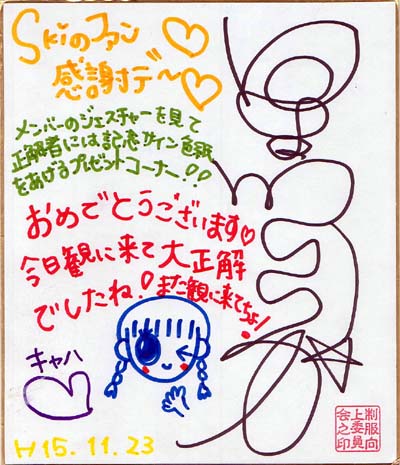 Skiのファン
感謝デ〜
メンバーのジェスチャーを見て
正解者には記念サイン色紙
をあげるプレゼントコーナー!!
おめでとうございます
今日観に来て大正解
でしたね!また観に来てちょ!
キャハ
H15.11.23
制服向
上委員
会之印